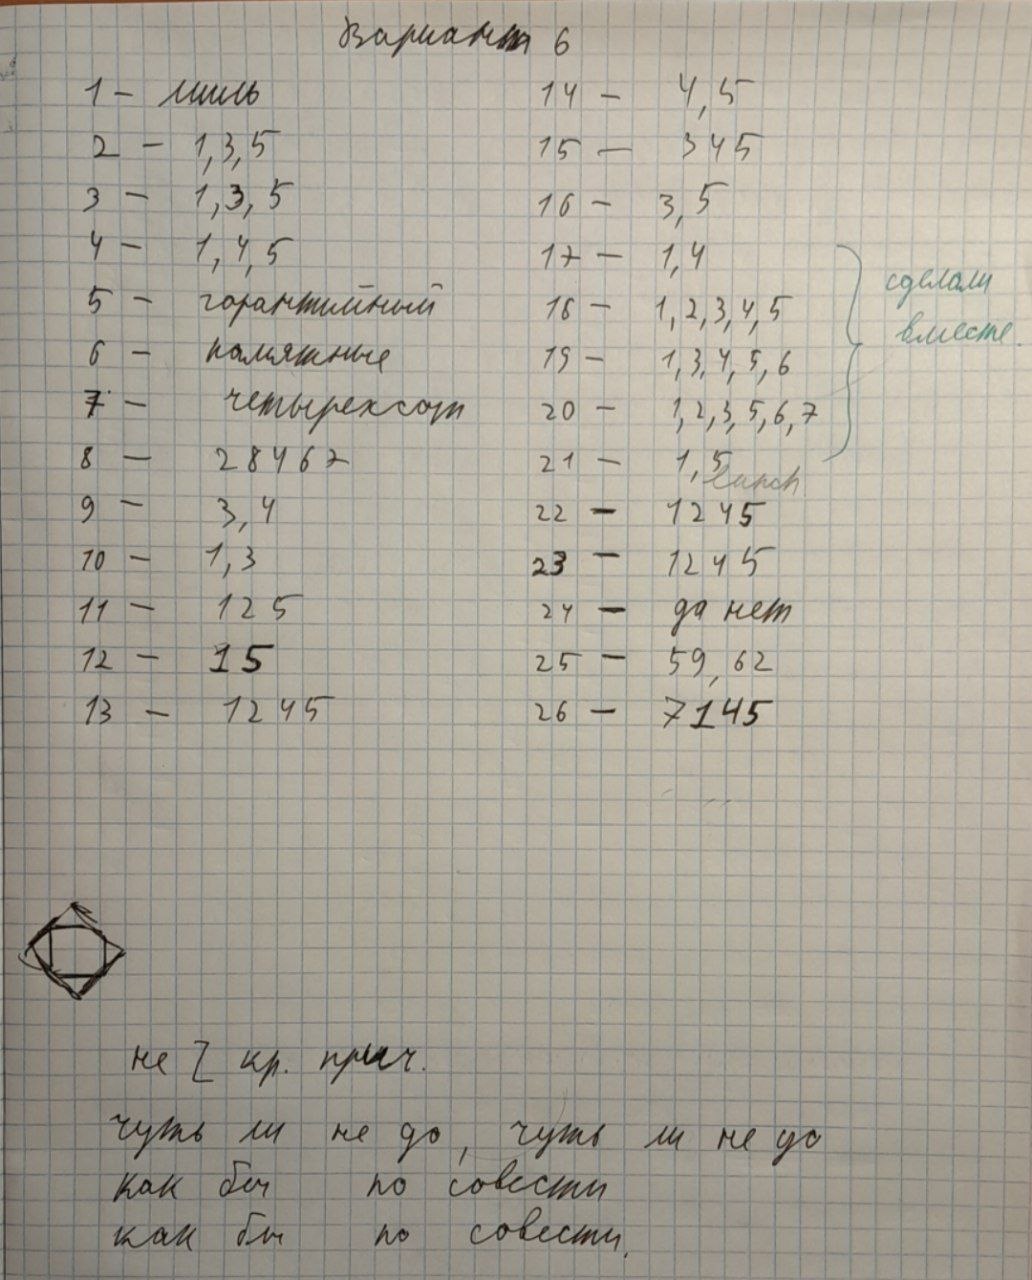 Вариант 6
1 - лишь
2 - 1,3,5
3 - 1,3,5
4 - 1,4,5
5 - гарантийный
6 - памятные
7 - четырехсот
8 - 28467
9 - 3,4
10 - 1,3
11 - 125
12 - 15
13 - 1245
14 - 4,5
15 - 345
16 - 3,5
17 - 1,4
18 - 1,2,3,4,5
19 - 1,3,4,5,6
20 - 1,2,3,5,6,7
21 - 1,5
22 - 1245
23 - 1245
24 - да нет
25 - 59,62
26 - 7145
сделали
вместе.
не [ кр. прич.
чуть ли не до, чуть ли не до
как бы по совести
как бы по совести.